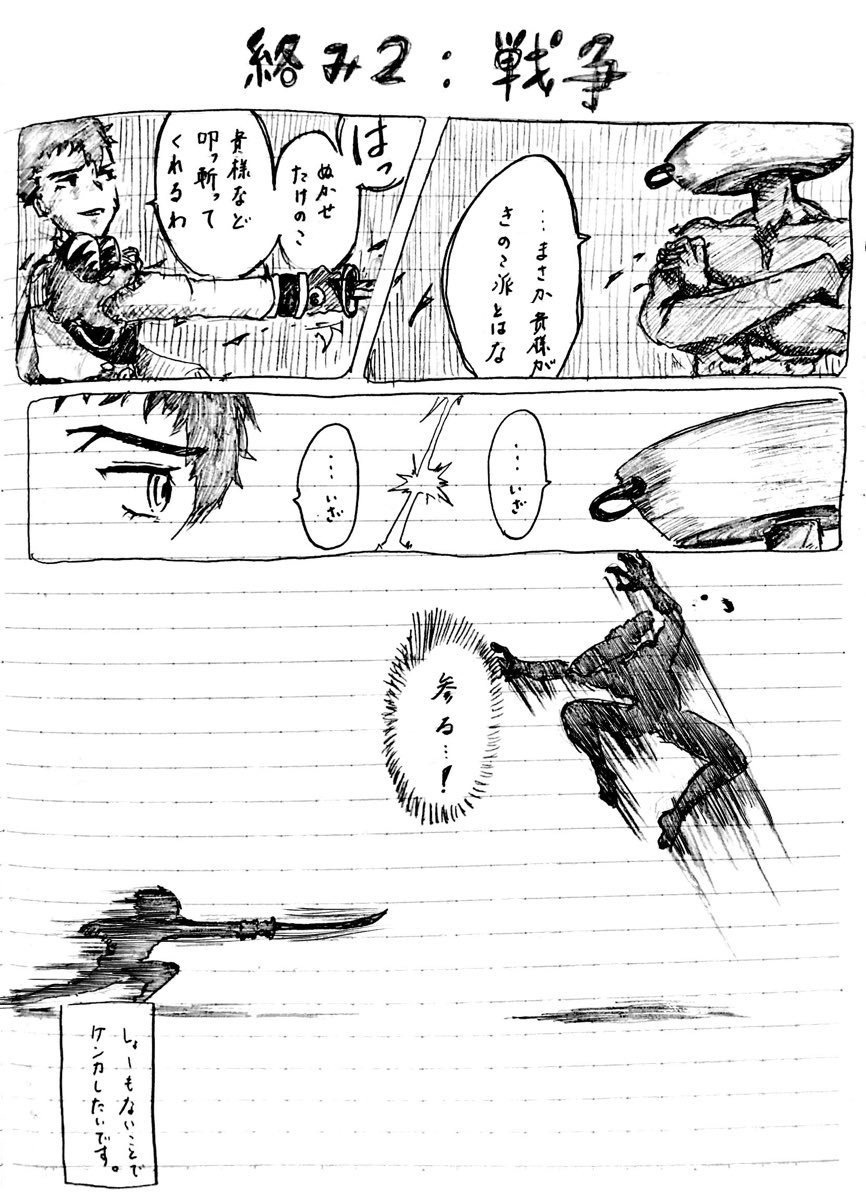 絡み2：戦争
…まさか貴様が
きのこ派とはな
はっ
ぬかせ
たけのこ
貴様など
叩っ斬って
くれるわ
…いざ
…いざ
参る…!
しょーもないことで
ケンカしたいです。